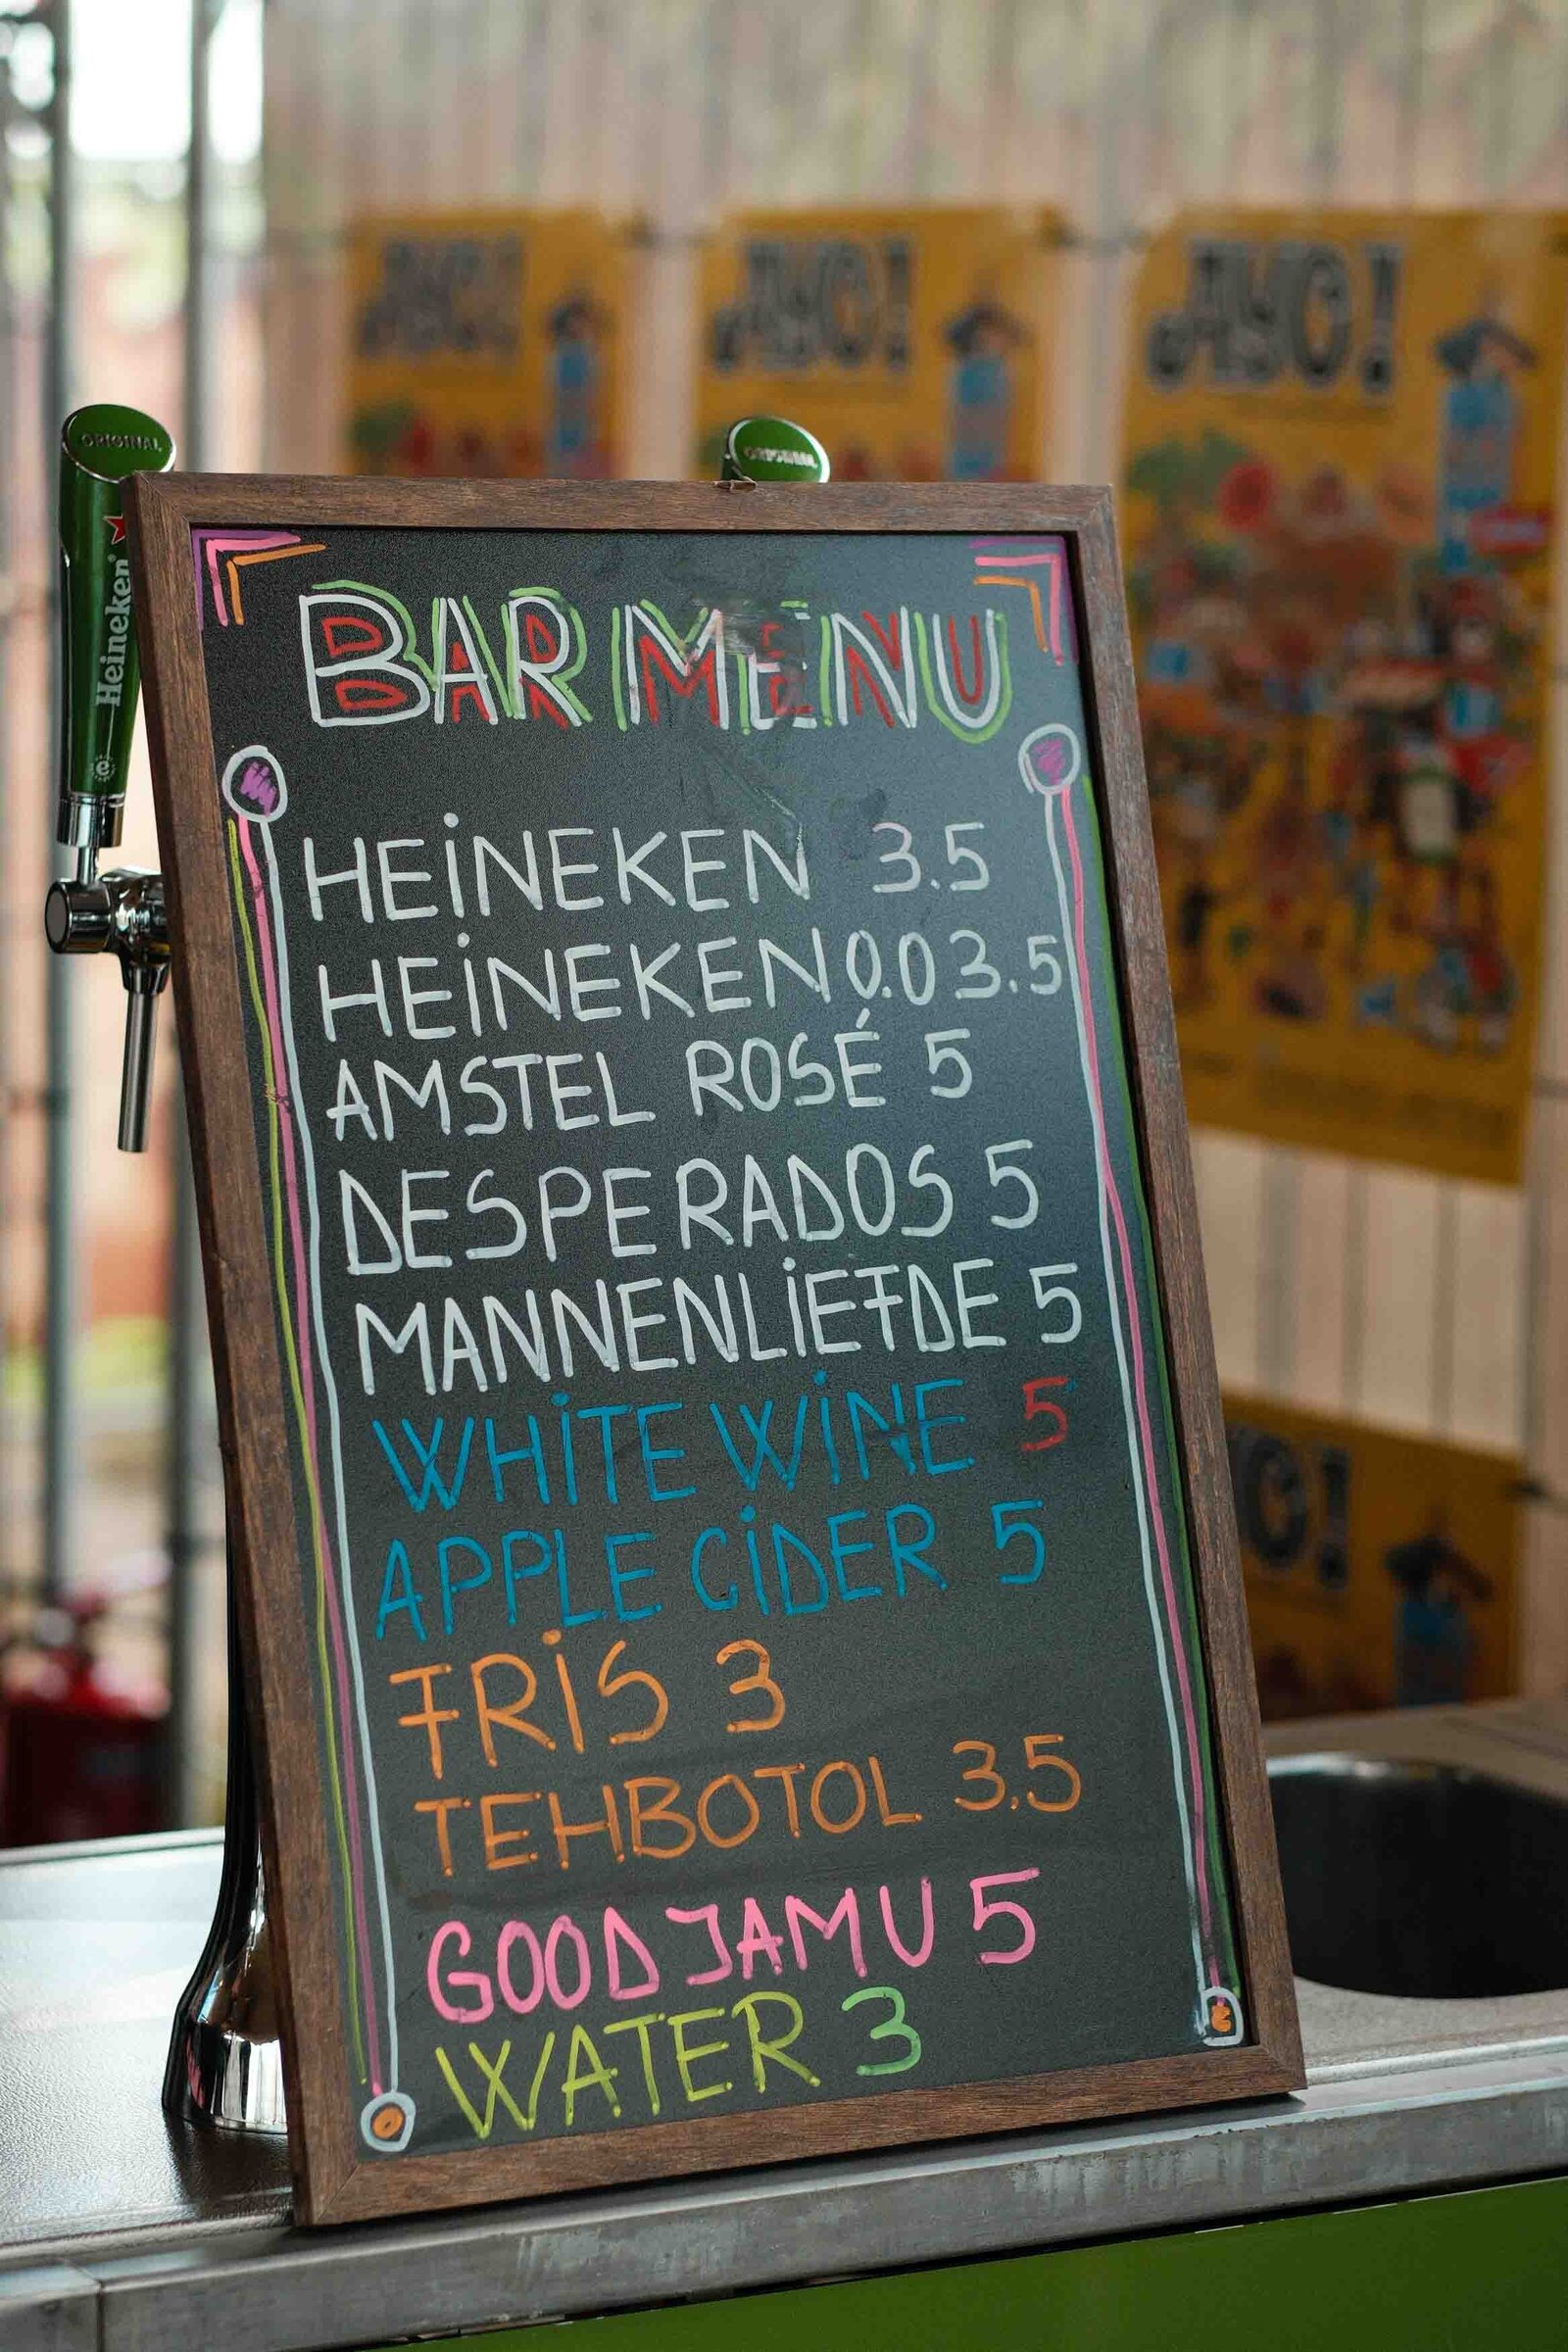 AYO!
AYO!
AYO!
ORIGINAL
ORIGINAL
Heineken
BAR MENU
HEINEKEN 3.5
HEINEKEN 0.0 3.5
AMSTEL ROSÉ 5
DESPERADOS 5
MANNENLIEFDE 5
WHITE WINE 5
APPLE CIDER 5
FRIS 3
TEHBOTOL 3.5
GOOD JAMU 5
WATER 3